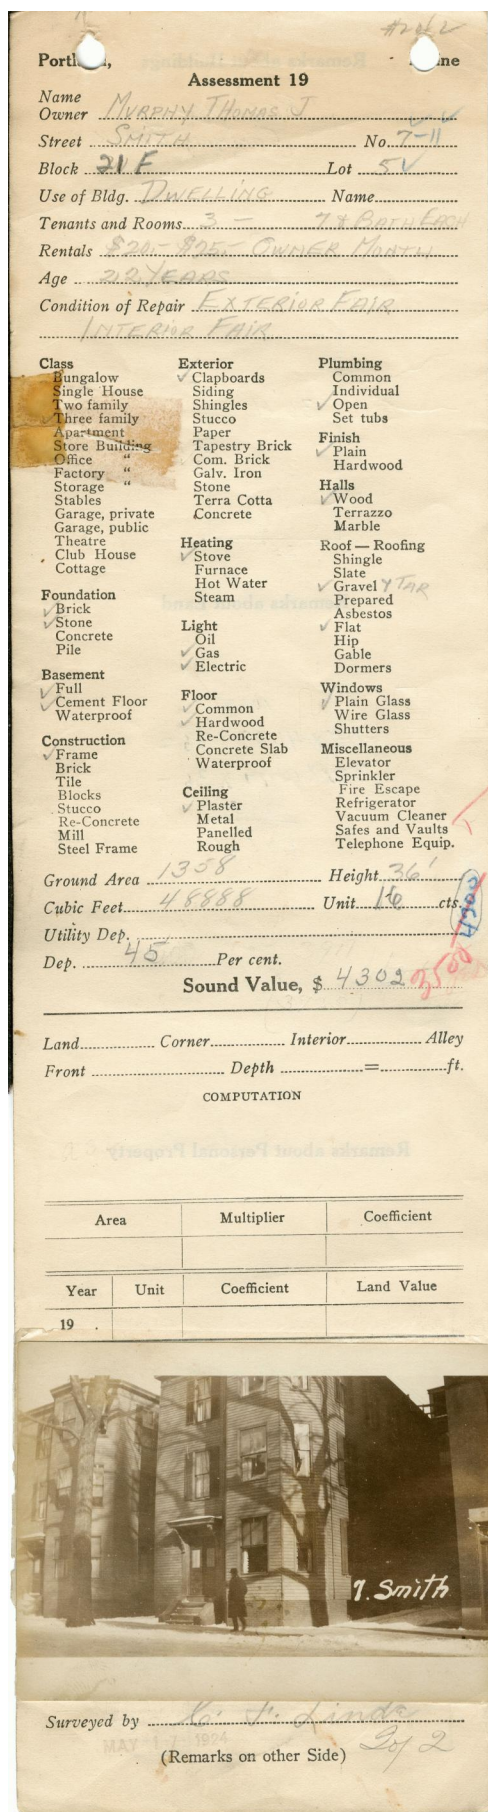 #2of2
Portland, Maine
Assessment 19
Name
Owner MURPHY THOMAS J
Street SMITH No. 7-11
Block 21 F Lot 5
Use of Bldg. DWELLING Name
Tenants and Rooms 3 - 7 & BATH EACH
Rentals $20.- $25.- OWNER MONTH
Age 22 YEARS
Condition of Repair EXTERIOR FAIR
INTERIOR FAIR
Class
Bungalow
Single House
Two family
✓ Three family
Apartment
Store Building
Office "
Factory "
Storage "
Stables
Garage, private
Garage, public
Theatre
Club House
Cottage
Foundation
✓ Brick
✓ Stone
Concrete
Pile
Basement
✓ Full
✓ Cement Floor
✓ Waterproof
Construction
✓ Frame
Brick
Tile
Blocks
Stucco
Re-Concrete
Mill
Steel Frame
Exterior
✓ Clapboards
Siding
Shingles
Stucco
Paper
Tapestry Brick
Com. Brick
Galv. Iron
Stone
Terra Cotta
Concrete
Heating
✓ Stove
Furnace
Hot Water
Steam
Light
Oil
✓ Gas
✓ Electric
Floor
✓ Common
✓ Hardwood
Re-Concrete
Concrete Slab
Waterproof
Ceiling
✓ Plaster
Metal
Panelled
Rough
Plumbing
Common
Individual
✓ Open
Set tubs
Finish
✓ Plain
Hardwood
Halls
✓ Wood
Terrazzo
Marble
Roof — Roofing
Shingle
Slate
✓ Gravel & TAR
Prepared
Asbestos
✓ Flat
Hip
Gable
Dormers
Windows
✓ Plain Glass
Wire Glass
Shutters
Miscellaneous
Elevator
Sprinkler
Fire Escape
Refrigerator
Vacuum Cleaner
Safes and Vaults
Telephone Equip.
Ground Area 1358 Height 36'
Cubic Feet 48888 Unit 16 cts.
Utility Dep.
Dep. 45 Per cent.
Sound Value, $ 4302
3500
Land Corner Interior Alley
Front Depth = ft.
COMPUTATION
Remarks about Personal Property
Area Multiplier Coefficient
Year Unit Coefficient Land Value
19 .
7. Smith
Surveyed by
MAY 17 1924
(Remarks on other Side) 2 of 2